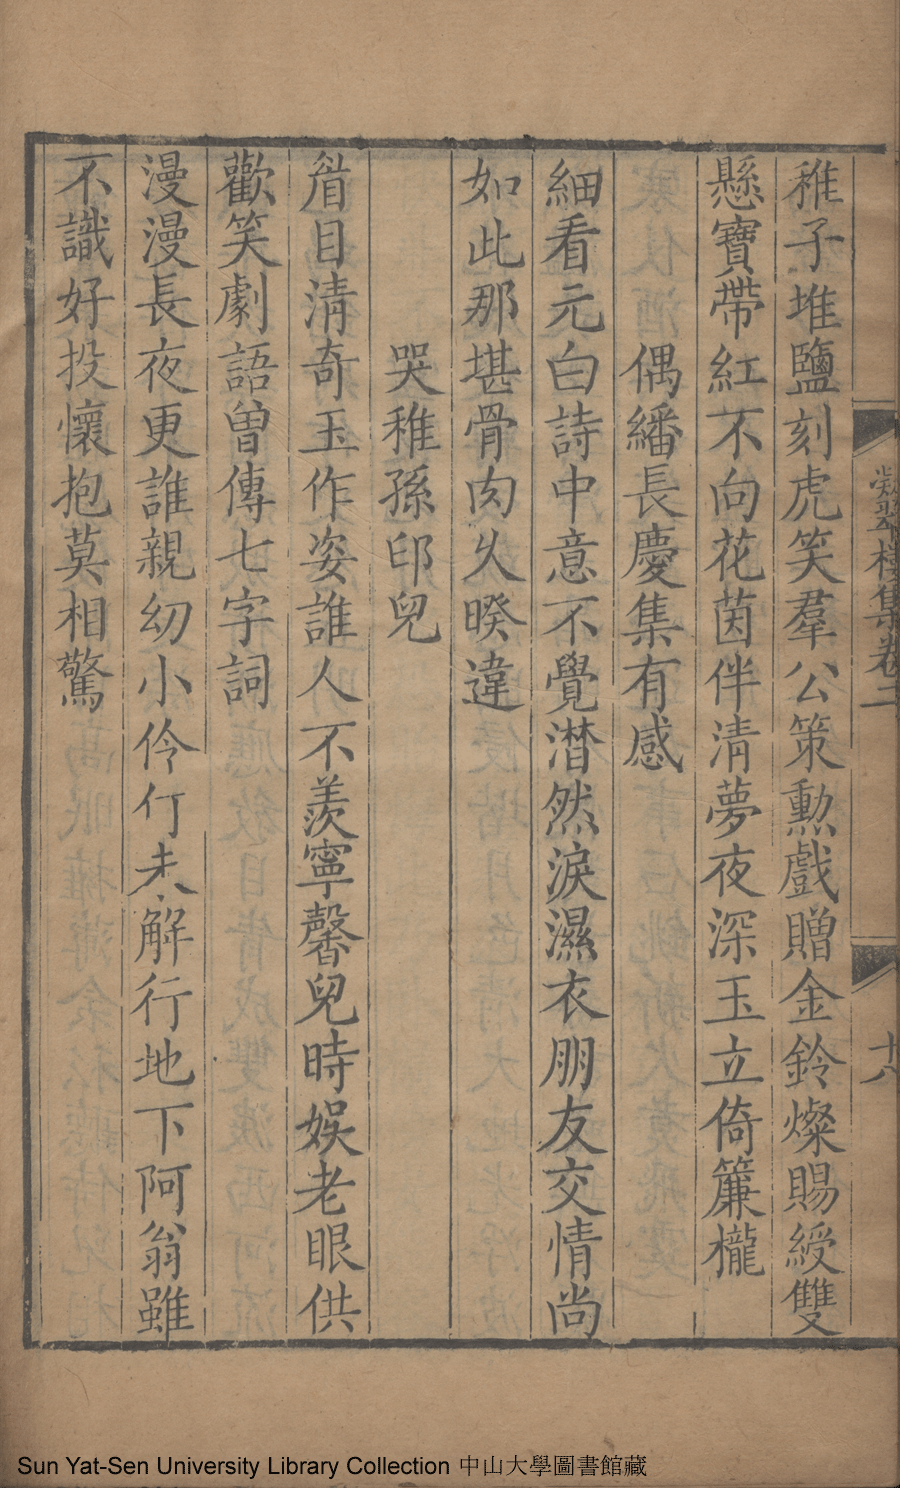 稚子堆鹽刻虎笑羣公策勲戲贈金鈴燦賜綬雙
懸寶帶紅不向花茵伴清夢夜深玉立倚簾櫳
偶繙長慶集有感
細看元白詩中意不覺潸然淚濕衣朋友交情尚
如此那堪骨肉乆暌違
哭稚孫卬兒
眉目清奇玉作姿誰人不羨寧馨兒時娛老眼供
歡笑劇語曽傳七字詞
漫漫長夜更誰親幼小伶仃未解行地下阿翁雖
不識好投懷抱莫相驚
翠樓集卷二
十八
Sun Yat-Sen University Library Collection 中山大學圖書館藏